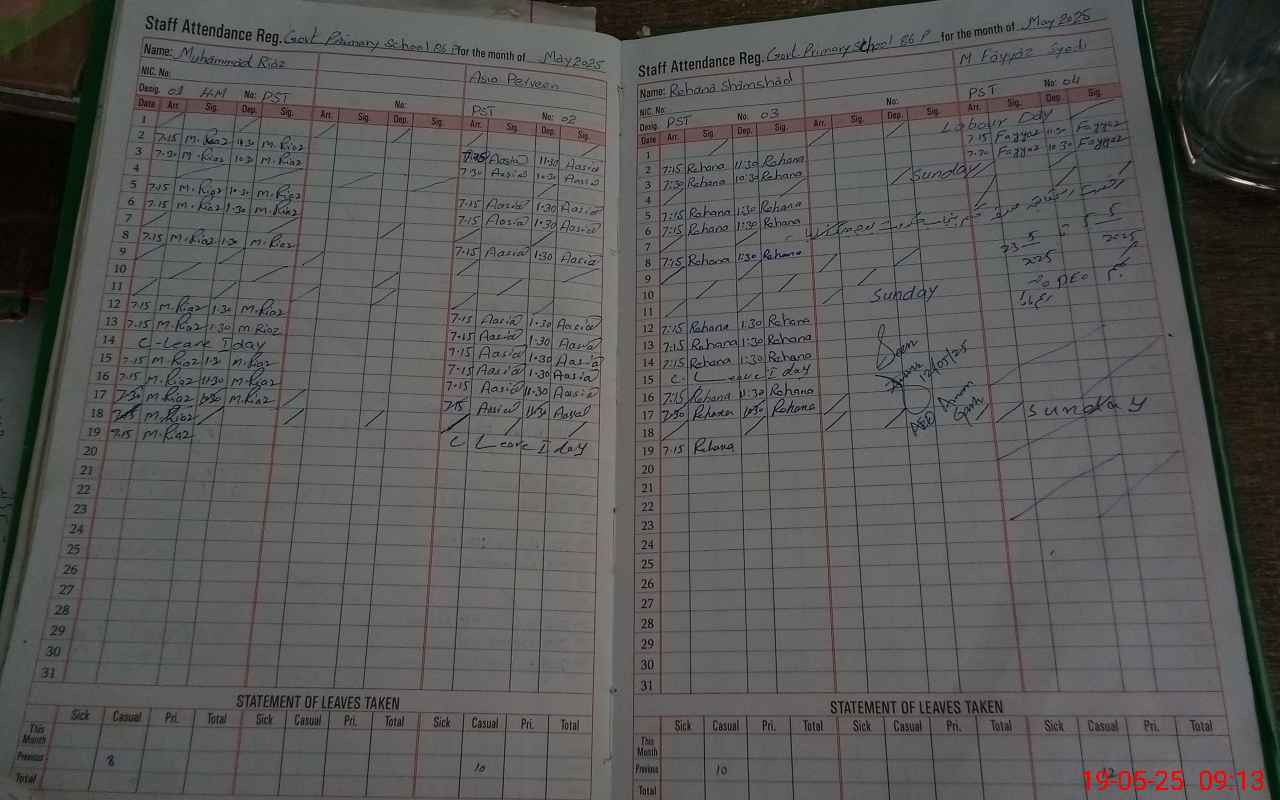 Staff Attendance Reg. Govt Primary School 86 P for the month of May 2025
Name: Muhammad Riaz
Asia Perveen
NIC. No:
Desig. 01 H.M No: PST No: PST No: 02
Date Arr. Sig. Dep. Sig. Arr. Sig. Dep. Sig. Arr. Sig. Dep. Sig.
1
2 7:15 M.Riaz 11:30 M.Riaz 7:15 Aasia 11:30 Aasia
3 7:30 M.Riaz 10:30 M.Riaz 7:30 Aasia 10:30 Aasia
4
5 7:15 M.Riaz 1:30 M.Riaz 7:15 Aasia 1:30 Aasia
6 7:15 M.Riaz 1:30 M.Riaz 7:15 Aasia 1:30 Aasia
7
8 7:15 M.Riaz 1:30 M.Riaz 7:15 Aasia 1:30 Aasia
9
10
11
12 7:15 M.Riaz 1:30 M.Riaz 7:15 Aasia 1:30 Aasia
13 7:15 M.Riaz 1:30 M.Riaz 7:15 Aasia 1:30 Aasia
14 C-Leave I day 7:15 Aasia 1:30 Aasia
15 7:15 M.Riaz 1:30 M.Riaz 7:15 Aasia 1:30 Aasia
16 7:15 M.Riaz 11:30 M.Riaz 7:15 Aasia 11:30 Aasia
17 7:30 M.Riaz 10:30 M.Riaz 7:15 Aasia Aasia
18 M.Riaz
19 7:15 M.Riaz C Leave I day
20
21
22
23
24
25
26
27
28
29
30
31
STATEMENT OF LEAVES TAKEN
Sick Casual Pri. Total Sick Casual Pri. Total Sick Casual Pri. Total
This Month
Previous 8 10
Total
Staff Attendance Reg. Govt Primary School 86 P for the month of May 2025
Name: Rehana Shamshad
M Fayyaz Syedi
NIC. No:
Desig. PST No: 03 No: PST No: 04
Date Arr. Sig. Dep. Sig. Arr. Sig. Dep. Sig. Arr. Sig. Dep. Sig.
1 Labour Day
2 7:15 Rehana 11:30 Rehana 7:15 Fayyaz 11:30 Fayyaz
3 7:30 Rehana 10:30 Rehana 7:30 Fayyaz 10:30 Fayyaz
4 Sunday
5 7:15 Rehana 1:30 Rehana
6 7:15 Rehana 1:30 Rehana
7
8 7:15 Rehana 1:30 Rehana
9
10
11 Sunday
12 7:15 Rehana 1:30 Rehana
13 7:15 Rehana 1:30 Rehana
14 7:15 Rehana 1:30 Rehana
15 C. Leave I day
16 7:15 Rehana 11:30 Rehana
17 7:30 Rehana 10:30 Rehana
18 Sunday
19 7:15 Rehana
Seen
12/05/25
AEO
20
21
22
23
24
25
26
27
28
29
30
31
STATEMENT OF LEAVES TAKEN
Sick Casual Pri. Total Sick Casual Pri. Total Sick Casual Pri. Total
This Month
Previous 10 12
Total
19-05-25 09:13